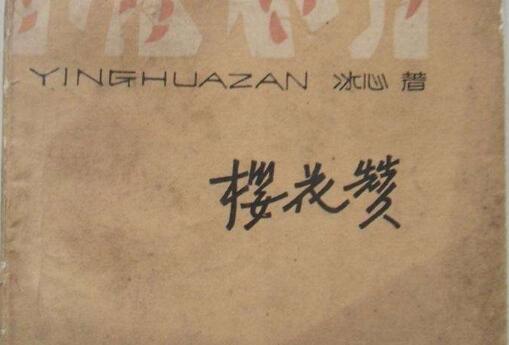 YINGHUAZAN 冰心著
樱花赞